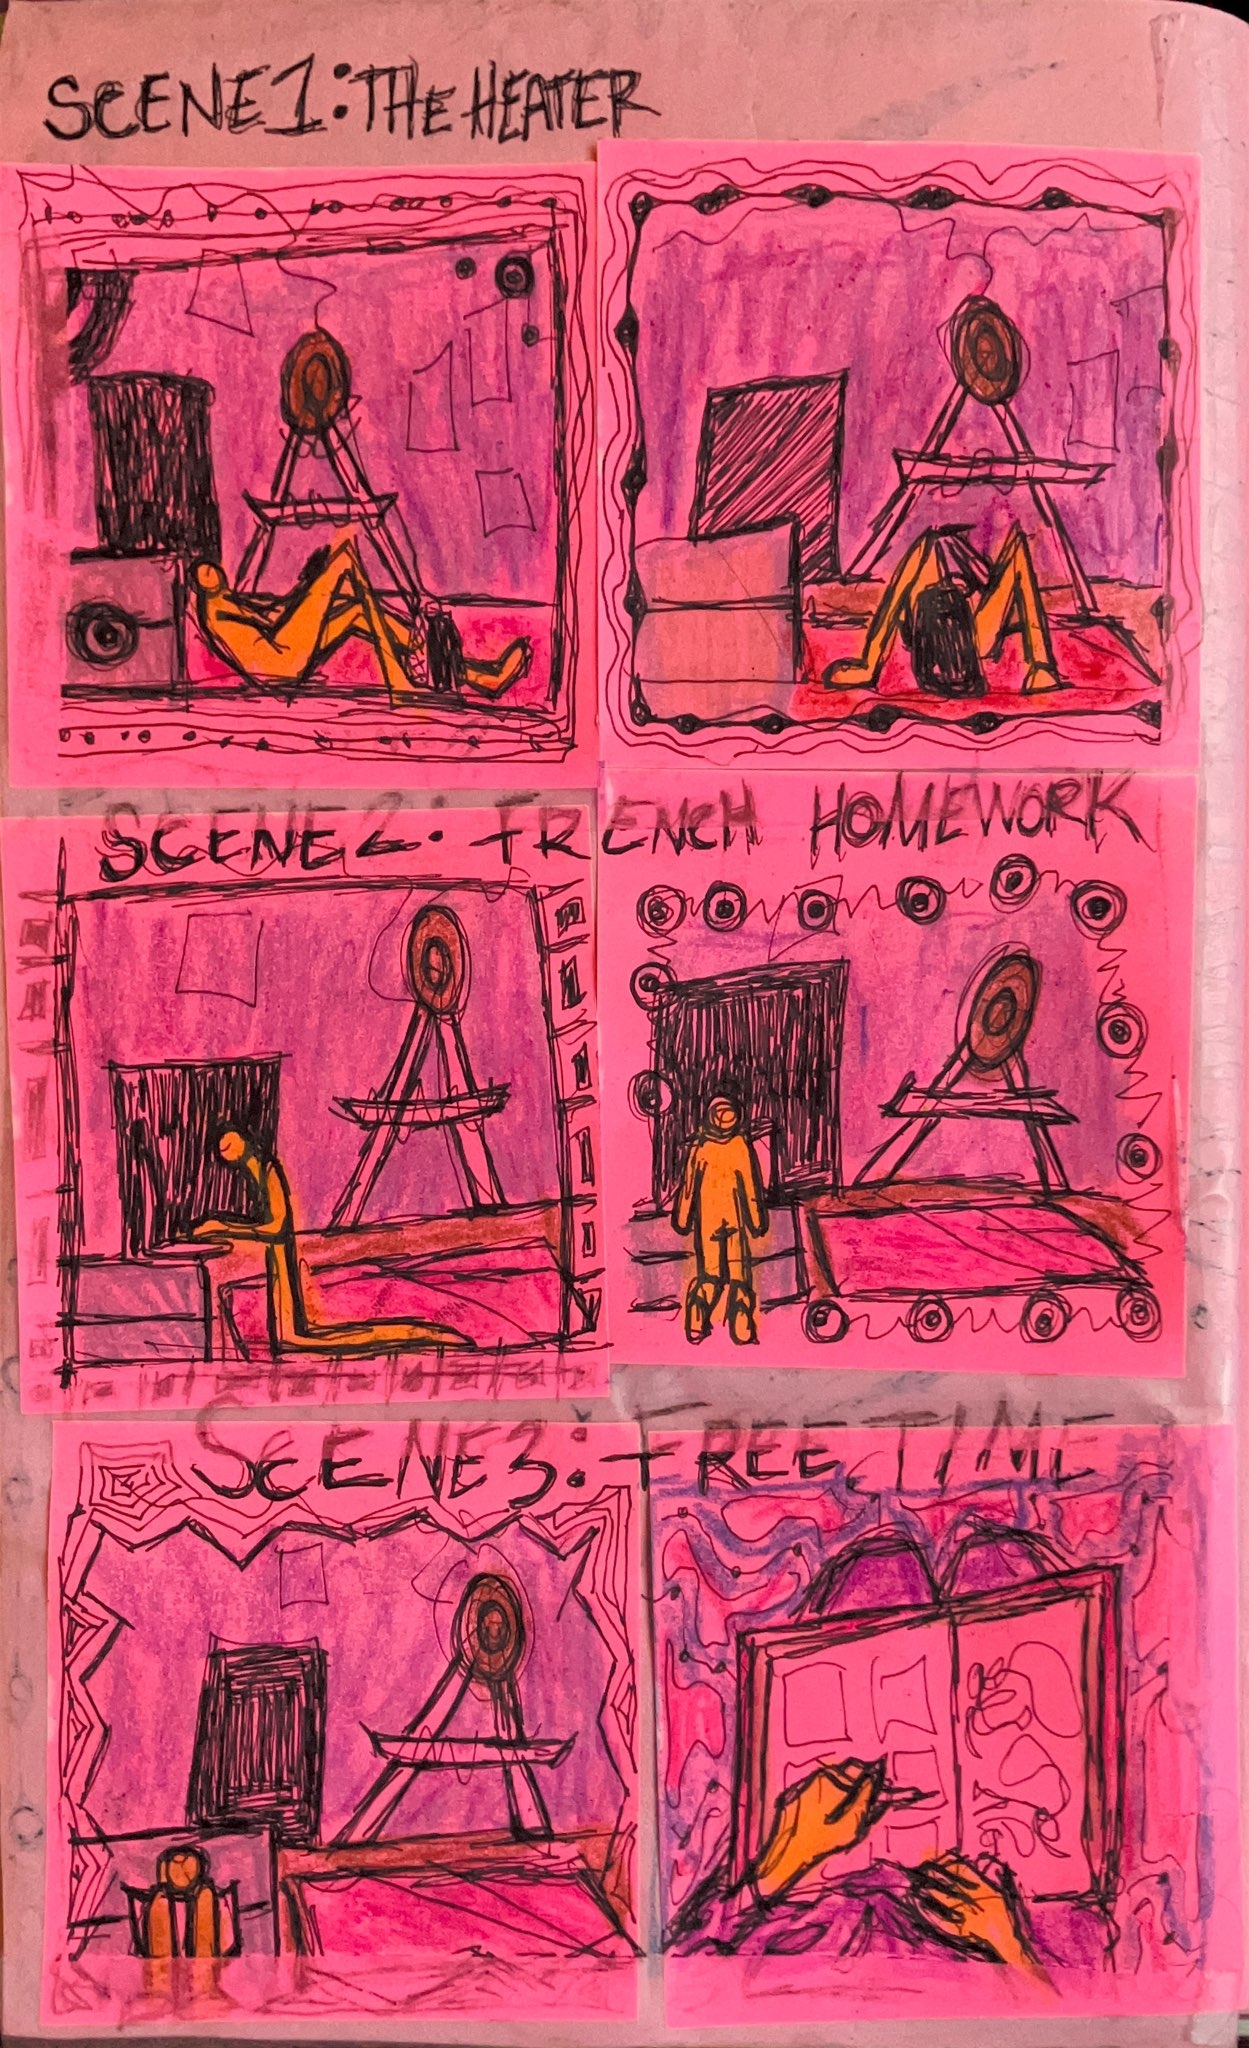 SCENE 1: THE HEATER
SCENE 2: FRENCH HOMEWORK
SCENE 3: FREE TIME